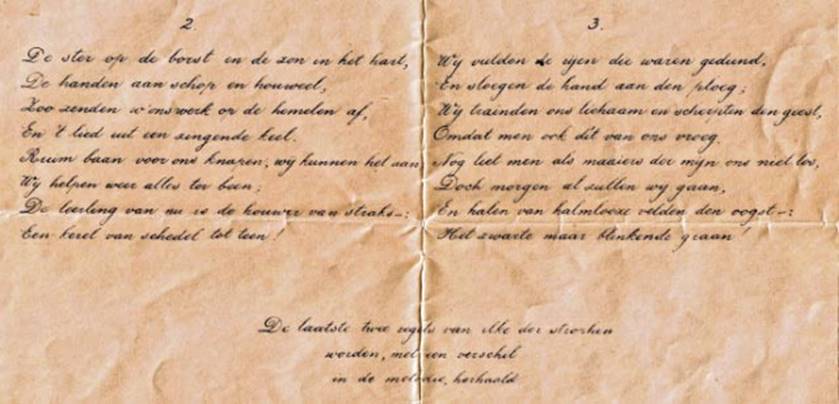 2.
De ster op de borst en de zon in het hart,
De handen aan schop en houweel,
Zoo zenden w'ons werk op de hemelen af,
En 't lied uit een zingende keel.
Ruim baan voor ons knapen, wij kunnen het aan
Wij helpen weer alles ter been;
De leerling van nu is de houwer van straks-:
Een kerel van schedel tot teen!
3.
Wij vulden de rijen die waren gedund,
En sloegen de hand aan den ploeg;
Wij trainden ons lichaam en scherpten den geest,
Omdat men ook dit van ons vroeg.
Nog liet men als maaiers der mijn ons niet los,
Doch morgen al zullen wij gaan,
En halen van halmlooze velden den oogst-:
Het zwarte maar blinkende graan!
De laatste twee regels van elke der strophen
worden, met een verschil
in de melodie, herhaald